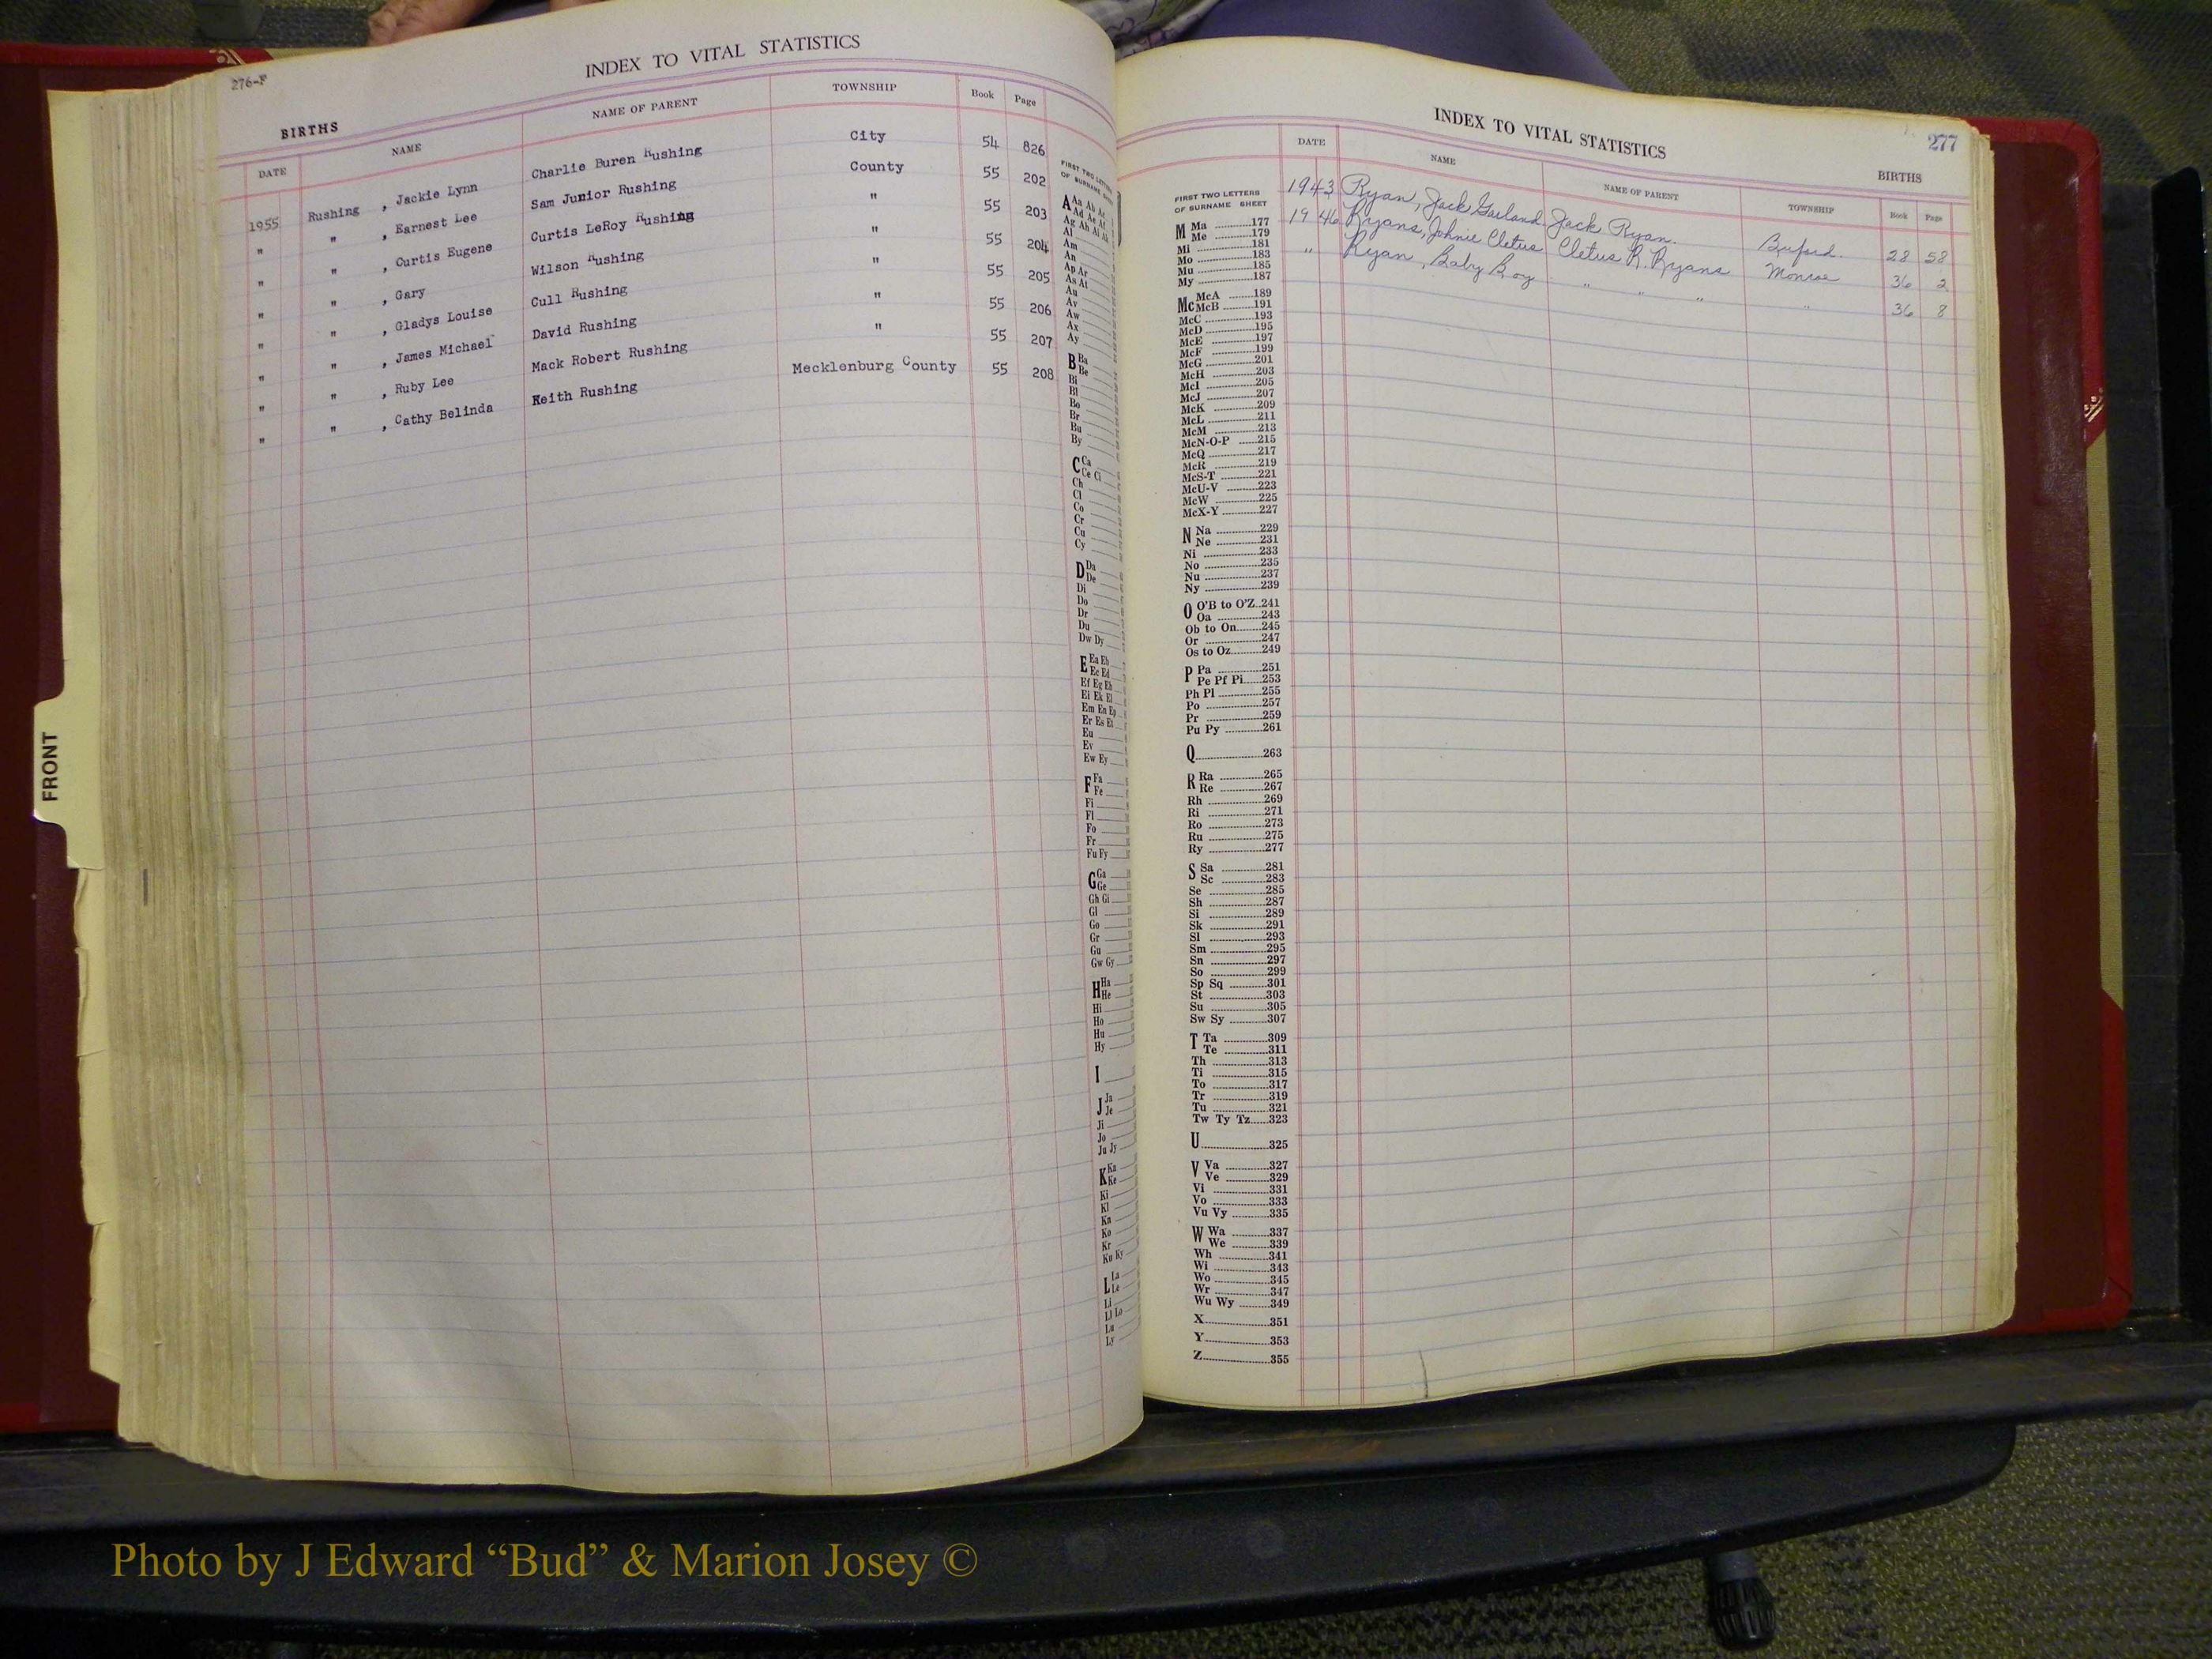 276-F
INDEX TO VITAL STATISTICS
BIRTHS
DATE NAME NAME OF PARENT TOWNSHIP Book Page
1955 Rushing , Jackie Lynn Charlie Buren Rushing City 54 826
" " , Earnest Lee Sam Junior Rushing County 55 202
" " , Curtis Eugene Curtis LeRoy Rushing " 55 203
" " , Gary Wilson Rushing " 55 204
" " , Gladys Louise Cull Rushing " 55 205
" " , James Michael David Rushing " 55 206
" " , Ruby Lee Mack Robert Rushing " 55 207
" " , Cathy Belinda Keith Rushing Mecklenburg County 55 208
FIRST TWO LETTERS
OF SURNAME
A Aa Ab Ac
Ad Ae Af
Ag Ah Ai Ak
Al
Am
An
Ap Ar
As At
Au
Av
Aw
Ax
Ay
B Ba
Be
Bi
Bl
Bo
Br
Bu
By
C Ca
Ce Ci
Ch
Cl
Co
Cr
Cu
Cy
D Da
De
Di
Do
Dr
Du
Dw Dy
E Ea Eb
Ec Ed
Ef Eg Eh
Ei Ek El
Em En Ep
Er Es Et
Eu
Ev
Ew Ey
F Fa
Fe
Fi
Fl
Fo
Fr
Fu Fy
G Ga
Ge
Gh Gi
Gl
Go
Gr
Gu
Gw Gy
H Ha
He
Hi
Ho
Hu
Hy
I
J Ja
Je
Ji
Jo
Ju Jy
K Ka
Ke
Ki
Kl
Kn
Ko
Kr
Ku Ky
L La
Le
Li
Ll Lo
Lu
Ly
INDEX TO VITAL STATISTICS
277
BIRTHS
DATE NAME NAME OF PARENT TOWNSHIP Book Page
1943 Ryan, Jack Garland Jack Ryan. Buford. 28 58
1946 Ryans, Johnie Cletus Cletus R. Ryans Monroe 36 2
" Ryan, Baby Boy " " " " 36 8
FIRST TWO LETTERS
OF SURNAME SHEET
M Ma 177
Me 179
Mi 181
Mo 183
Mu 185
My 187
Mc McA 189
McB 191
McC 193
McD 195
McE 197
McF 199
McG 201
McH 203
McI 205
McJ 207
McK 209
McL 211
McM 213
McN-O-P 215
McQ 217
McR 219
McS-T 221
McU-V 223
McW 225
McX-Y 227
N Na 229
Ne 231
Ni 233
No 235
Nu 237
Ny 239
O O'B to O'Z 241
Oa 243
Ob to On 245
Or 247
Os to Oz 249
P Pa 251
Pe Pf Pi 253
Ph Pl 255
Po 257
Pr 259
Pu Py 261
Q 263
R Ra 265
Re 267
Rh 269
Ri 271
Ro 273
Ru 275
Ry 277
S Sa 281
Sc 283
Se 285
Sh 287
Si 289
Sk 291
Sl 293
Sm 295
Sn 297
So 299
Sp Sq 301
St 303
Su 305
Sw Sy 307
T Ta 309
Te 311
Th 313
Ti 315
To 317
Tr 319
Tu 321
Tw Ty Tz 323
U 325
V Va 327
Ve 329
Vi 331
Vo 333
Vu Vy 335
W Wa 337
We 339
Wh 341
Wi 343
Wo 345
Wr 347
Wu Wy 349
X 351
Y 353
Z 355
FRONT
Photo by J Edward “Bud” & Marion Josey ©